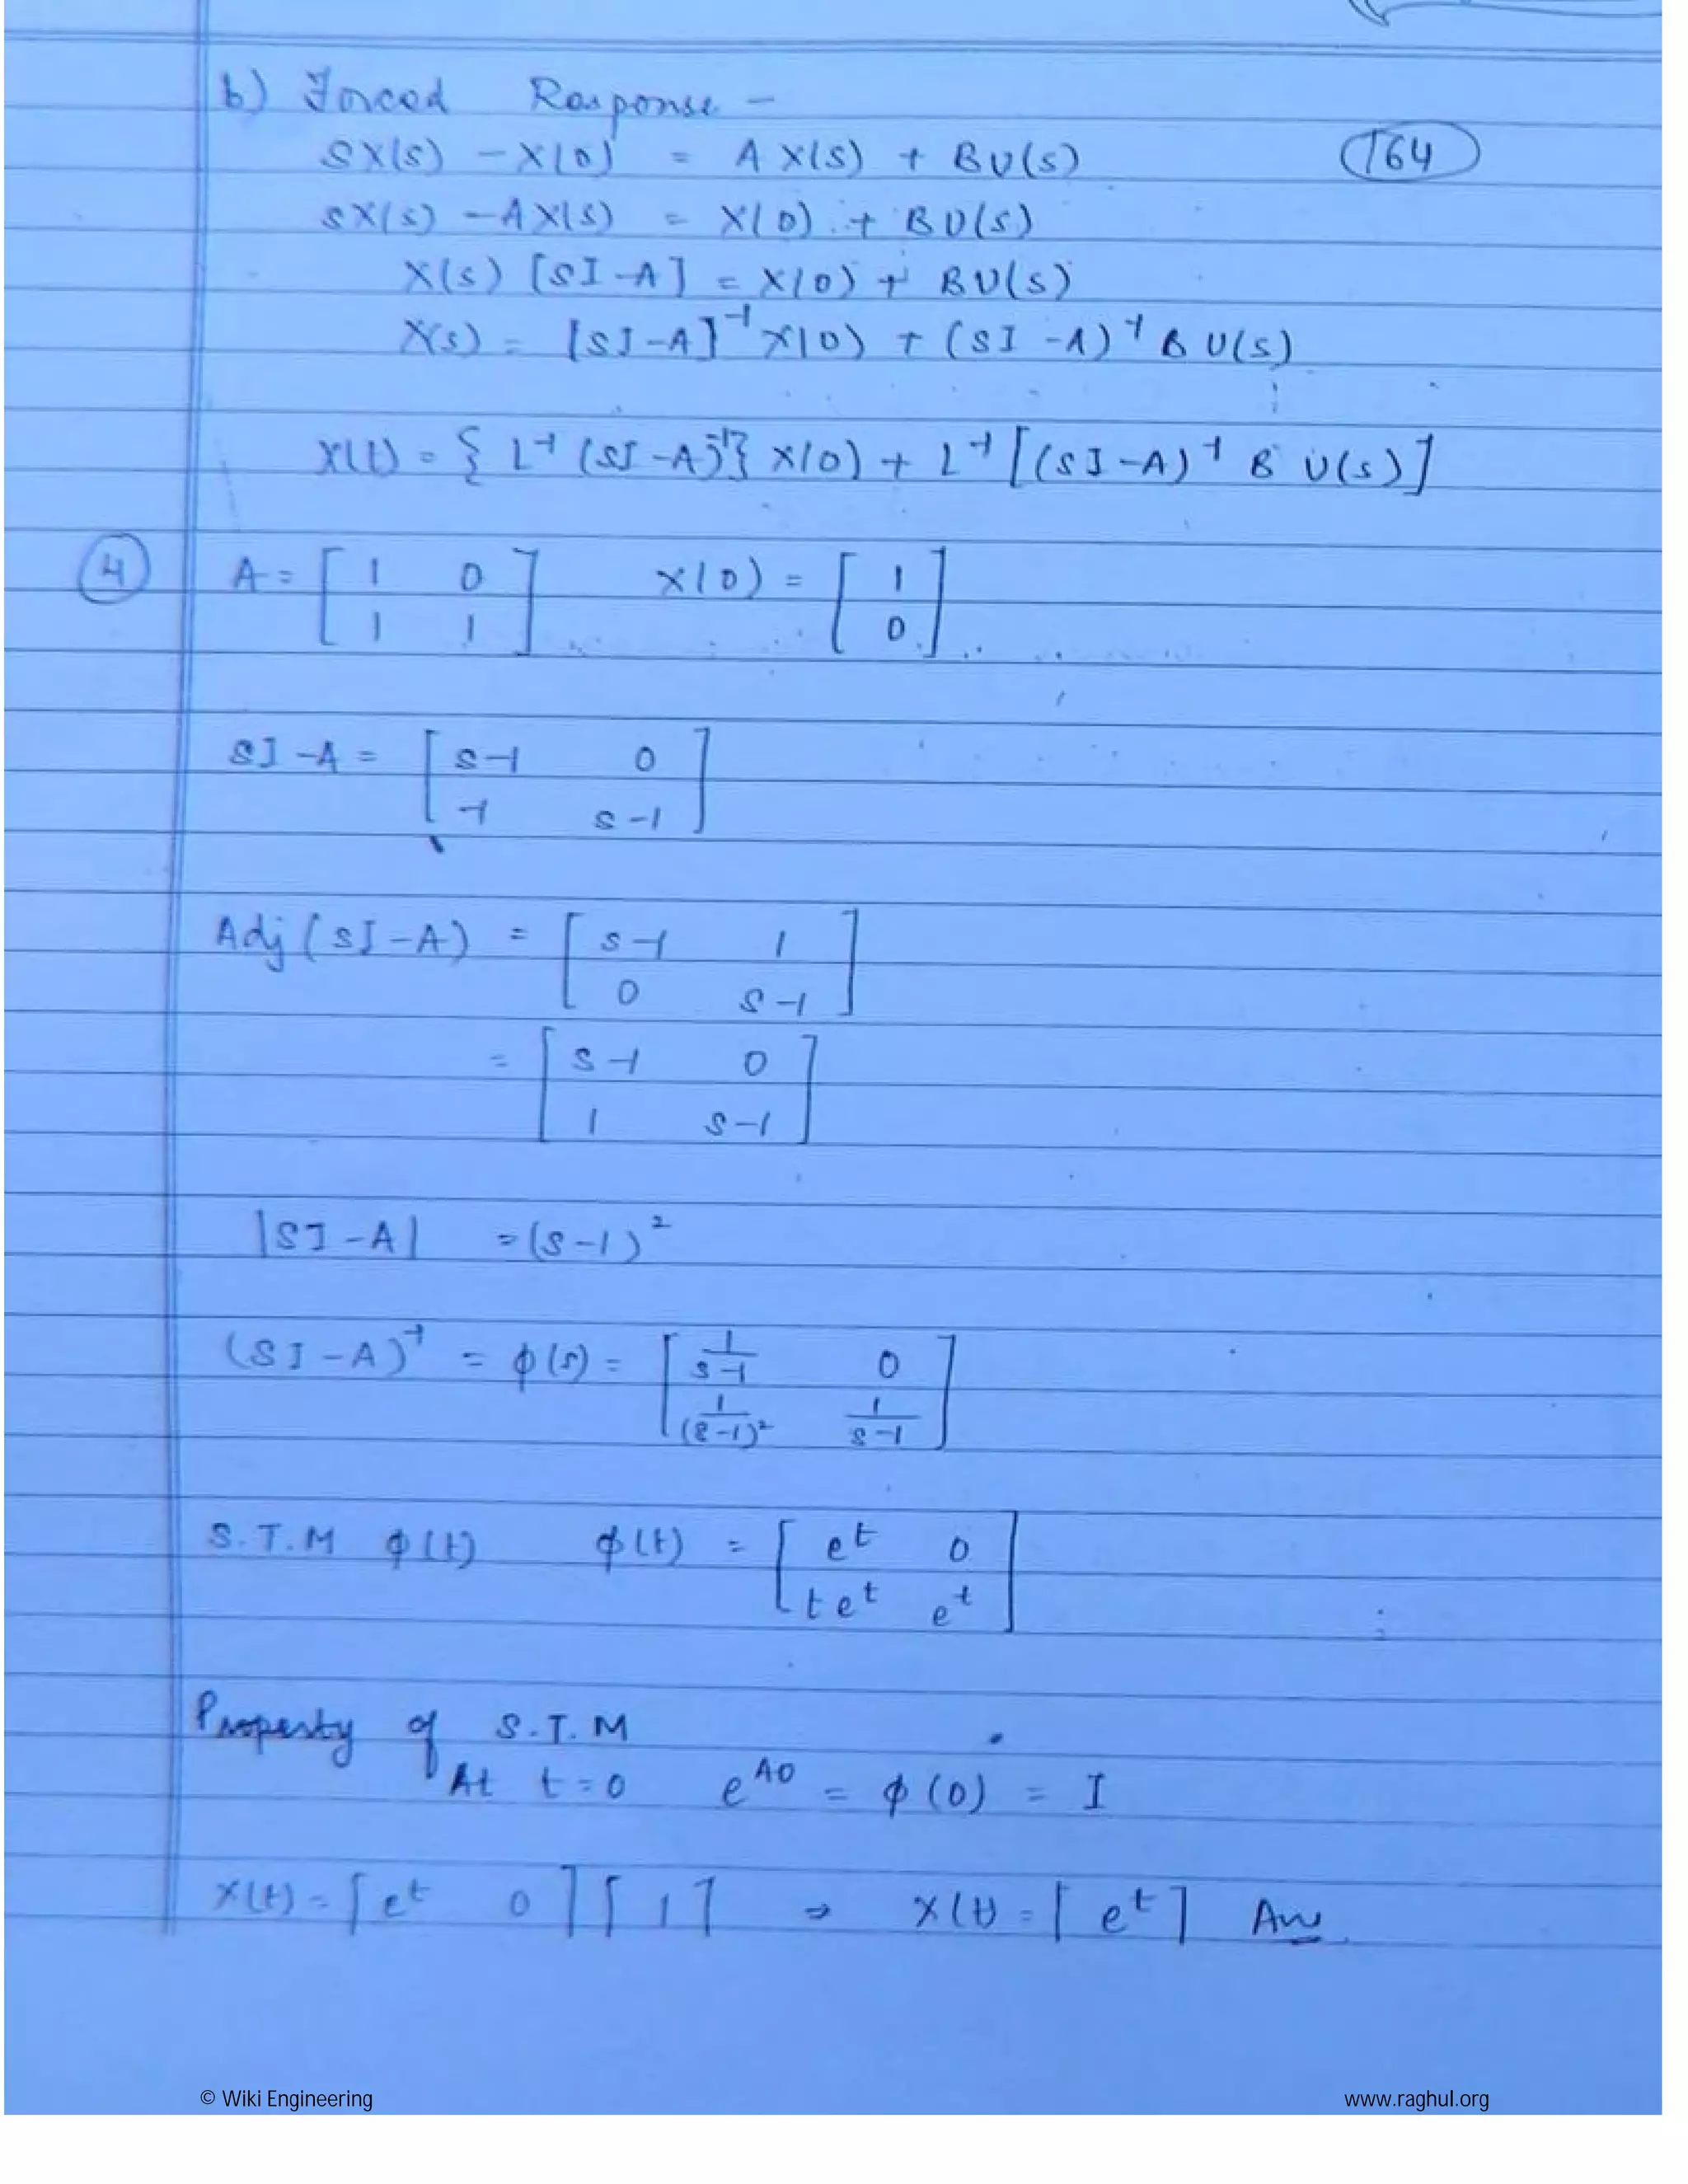 b) Forced Response -
SX(s) - X(0) = A X(s) + B U(s)
164
SX(s) - AX(s) = X(0) + B U(s)
X(s) [SI - A] = X(0) + B U(s)
X(s) = [SI - A]⁻¹ X(0) + (SI - A)⁻¹ B U(s)
X(t) = { L⁻¹ (SI - A)⁻¹ } X(0) + L⁻¹ [(SI - A)⁻¹ B U(s)]
4 A = [ 1 0 X(0) = [ 1
1 1 ] 0 ]
SI - A = [ S-1 0
-1 S-1 ]
Adj (SI - A) = [ S-1 1
0 S-1 ]
= [ S-1 0
1 S-1 ]
|SI - A| = (S-1)²
(SI - A)⁻¹ = ϕ(s) = [ 1/(S-1) 0
1/(S-1)² 1/(S-1) ]
S.T.M ϕ(t) ϕ(t) = [ eᵗ 0
teᵗ eᵗ ]
Property of S.T.M
At t=0 e^A0 = ϕ(0) = I
X(t) = [ eᵗ 0 ] [ 1 ] ⇒ X(t) = [ eᵗ ] Ans
© Wiki Engineering www.raghul.org